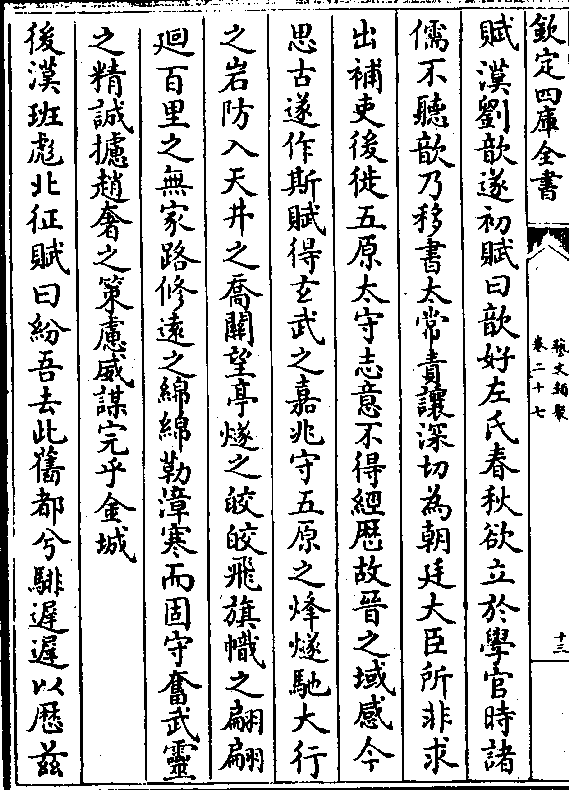 欽定四庫全書
藝文類聚
卷二十七
十三
賦漢劉歆遂初賦曰歆好左氏春秋欲立於學官時諸
儒不聽歆乃移書太常責讓深切為朝廷大臣所非求
出補吏後徙五原太守志意不得經歴故晉之域感今
思古遂作斯賦得𤣥武之嘉兆守五原之烽燧馳大行
之岩防入天井之喬關望亭燧之皎皎飛旗幟之翩翩
廻百里之無家路修遠之綿綿勒漳寒而固守奮武靈
之精誠攄趙奢之策慮威謀完乎金城
後漢班彪北征賦曰紛吾去此舊都兮騑遲遲以歴兹